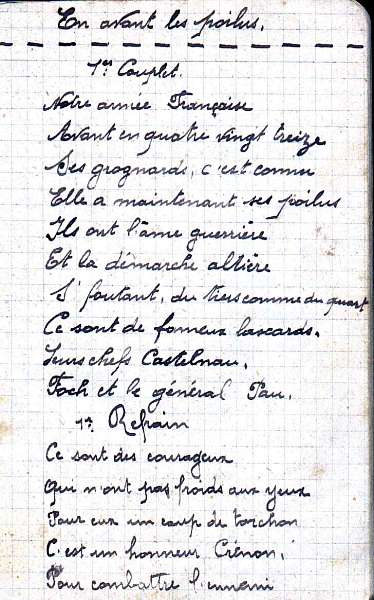 En avant les poilus.
1er Couplet.
Notre armée Française
Avant en quatre vingt treize
Ses grognards, c'est connu
Elle a maintenant ses poilus
Ils ont l'âme guerrière
Et la démarche altière
S' foutant, du tiers comme du quart
Ce sont de fameux lascards.
Leurs chefs Castelnau.
Foch et le général Pau.
1er Refrain
Ce sont des courageux
Qui n'ont pas froids aux yeux
Pour eux un coup de torchon
C'est un honneur Crénon,
Pour combattre l'ennemi